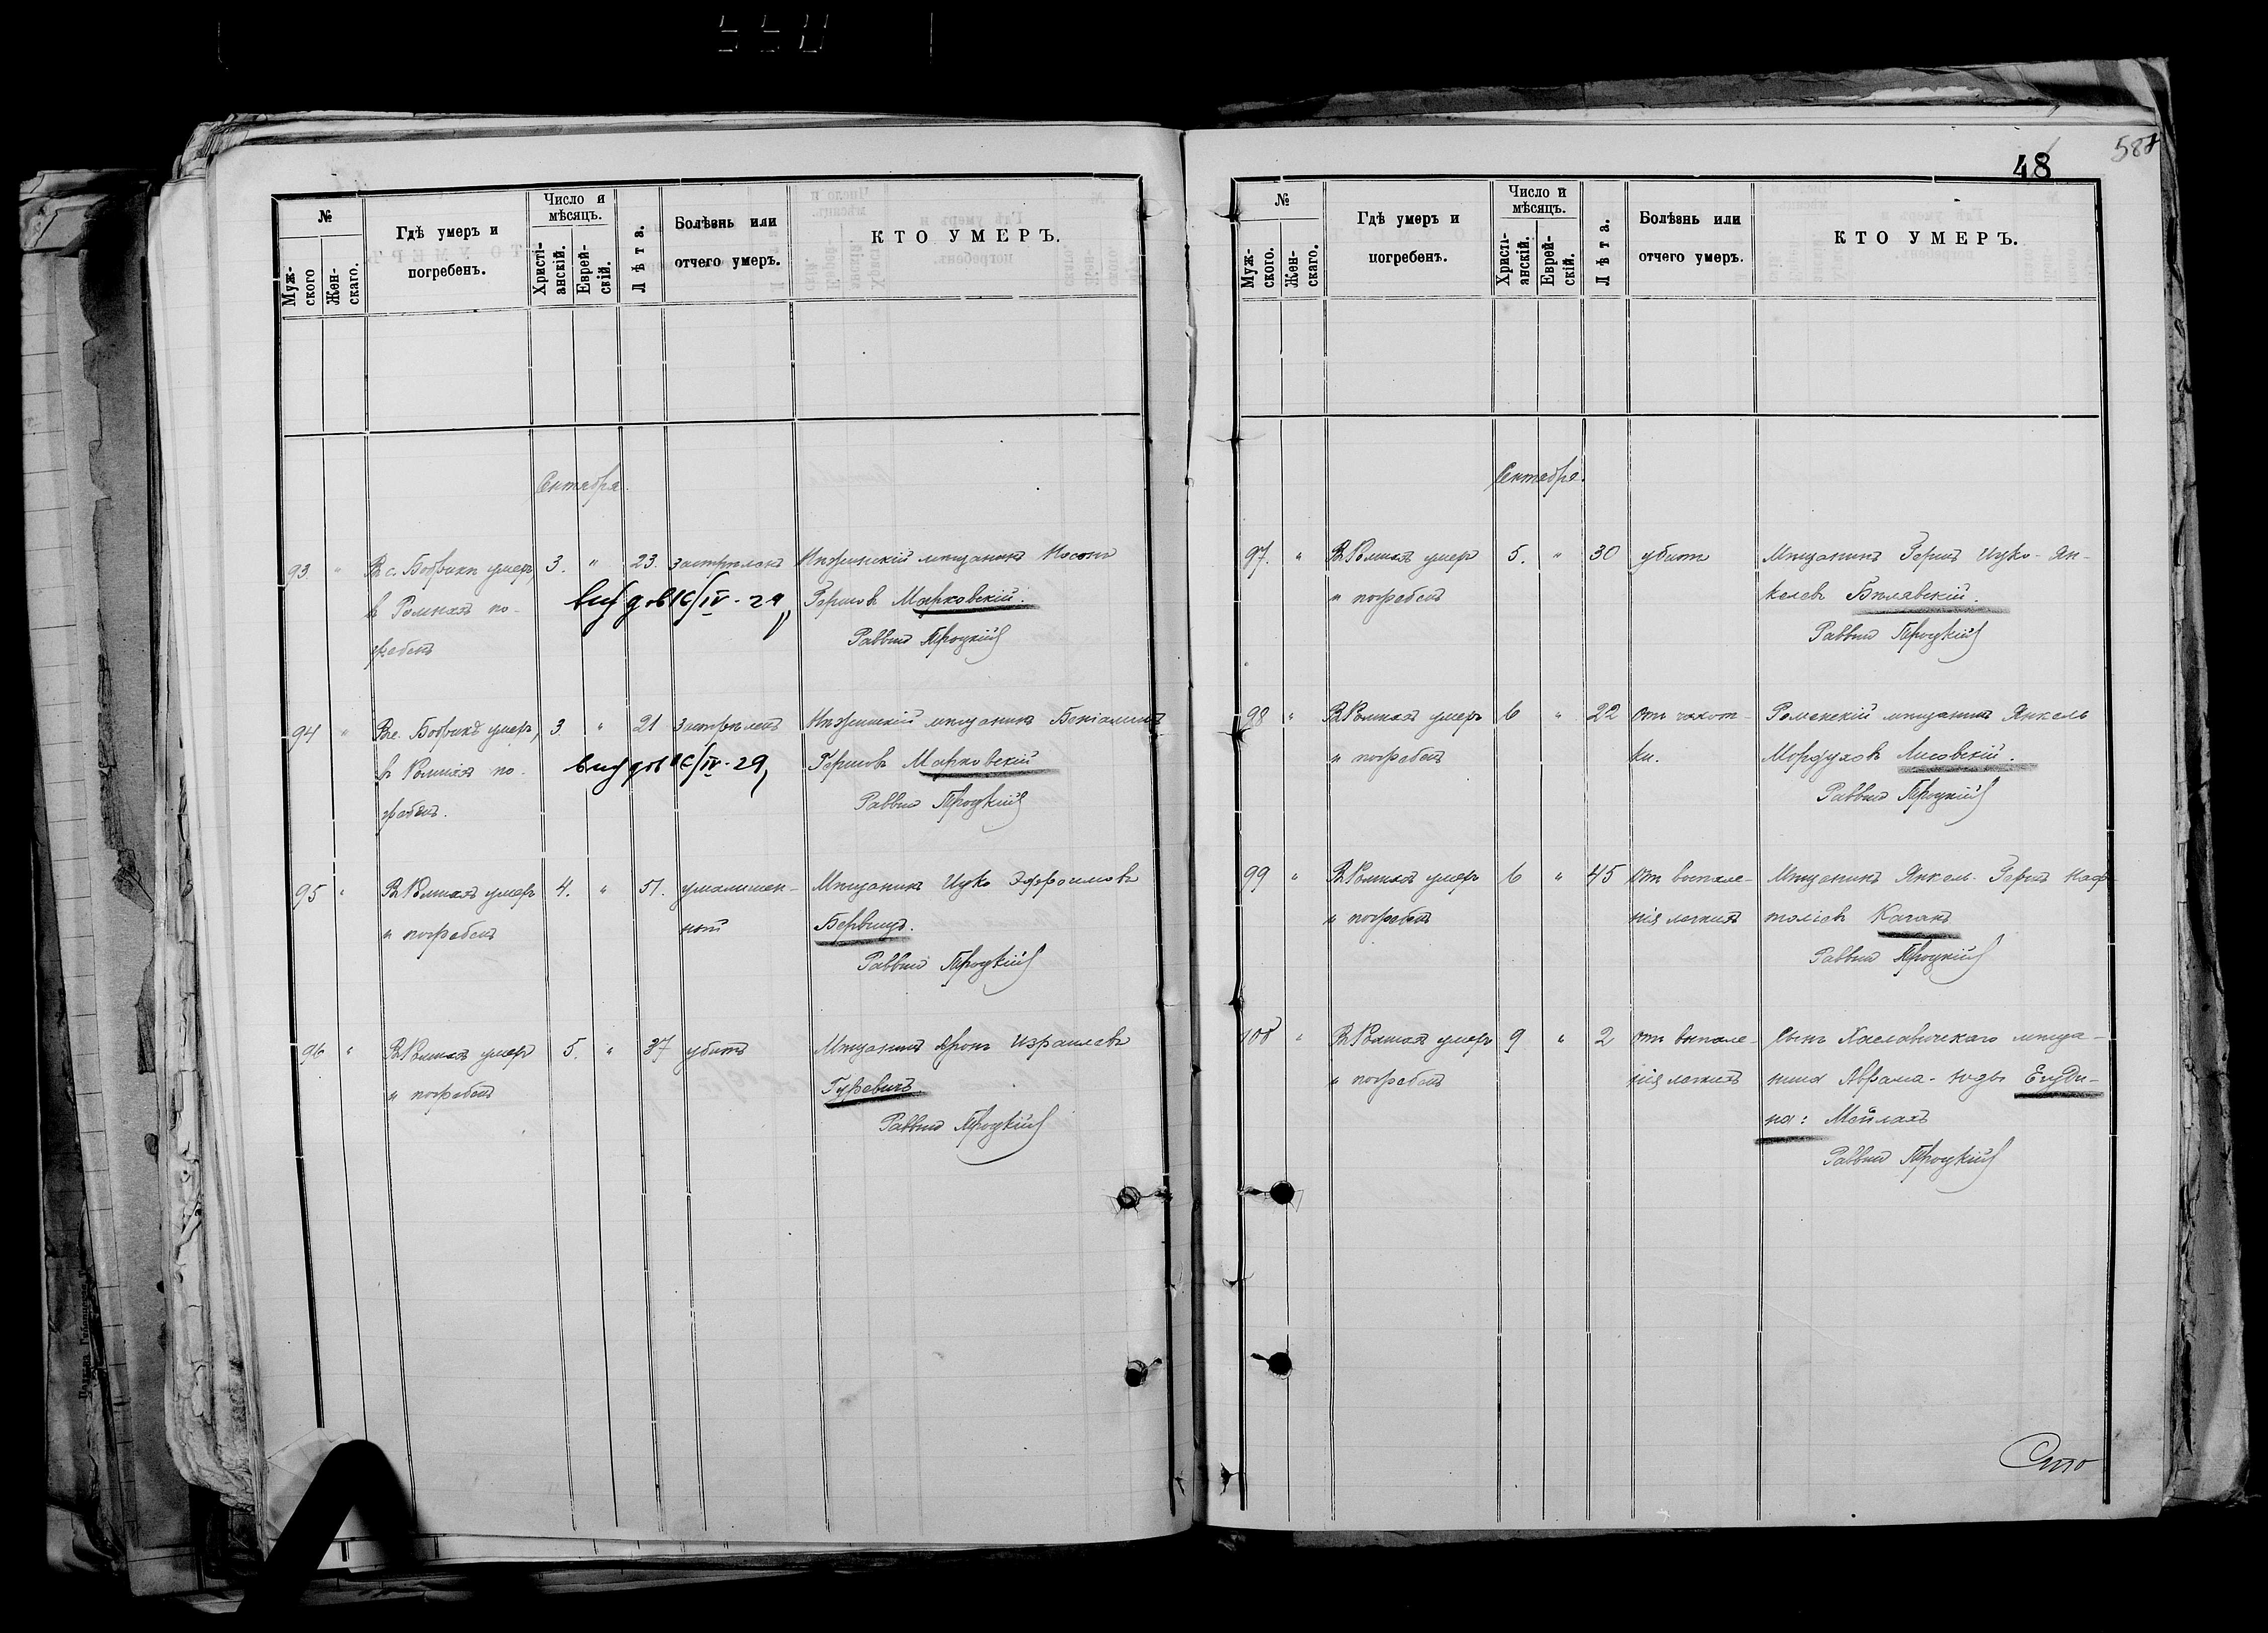 48
№
Муж-
ского
Жен-
скаго.
Гдѣ умеръ и
погребенъ.
Число и
мѣсяцъ.
Христі-
анскій.
Еврей-
скій.
Лѣта.
Болѣзнь или
отчего умеръ.
КТО УМЕРЪ.
Сентября.
93. " Въ с. Бобрикѣ умеръ, 3. " 23. застрѣленъ Нѣжинскій мѣщанинъ Носонъ
въ Ромнахъ по- 16/IV-29 Гершовъ Марковскій.
гребенъ Раввинъ Троцкій
94 " Въ с. Бобрикѣ умеръ, 3 " 21 застрѣленъ Нѣжинскій мѣщанинъ Беніаминъ
въ Ромнахъ по- 16/IV-29 Гершовъ Марковскій
гребенъ. Раввинъ Троцкій
95 " Въ Ромнахъ умеръ 4. " 51. умалишен- Мѣщанинъ Ицко Эфроимовъ
и погребенъ Бервицъ.
Раввинъ Троцкій
96 " Въ Ромнахъ умеръ 5. " 37 убитъ Мѣщанинъ Аронъ Израилевъ
и погребенъ Гуревичъ
Раввинъ Троцкій
№
Муж-
ского.
Жен-
скаго.
Гдѣ умеръ и
погребенъ.
Число и
мѣсяцъ.
Христі-
анскій.
Еврей-
скій.
Лѣта.
Болѣзнь или
отчего умеръ.
КТО УМЕРЪ.
Сентября.
97. " Въ Ромнахъ умеръ 5. " 30 убитъ Мѣщанинъ Гершъ Ицко-Ян-
и погребенъ келевъ Бѣлявскій.
Раввинъ Троцкій
98 " Въ Ромнахъ умеръ 6 " 22 отъ чахот- Роменскій мѣщанинъ Янкель
и погребенъ ки. Мордуховъ Лисовскій.
Раввинъ Троцкій
99 " Въ Ромнахъ умеръ 6 " 45 отъ воспале- Мѣщанинъ Янкель-Гершъ Наф-
и погребенъ нія легкихъ толіевъ Каганъ
Раввинъ Троцкій
100 " Въ Ромнахъ умеръ 9 " 2 отъ воспале- Сынъ Хаславичскаго мѣща-
и погребенъ нія легкихъ нина Абрама-Юды
на: Мейлахъ
Раввинъ Троцкій
Сто